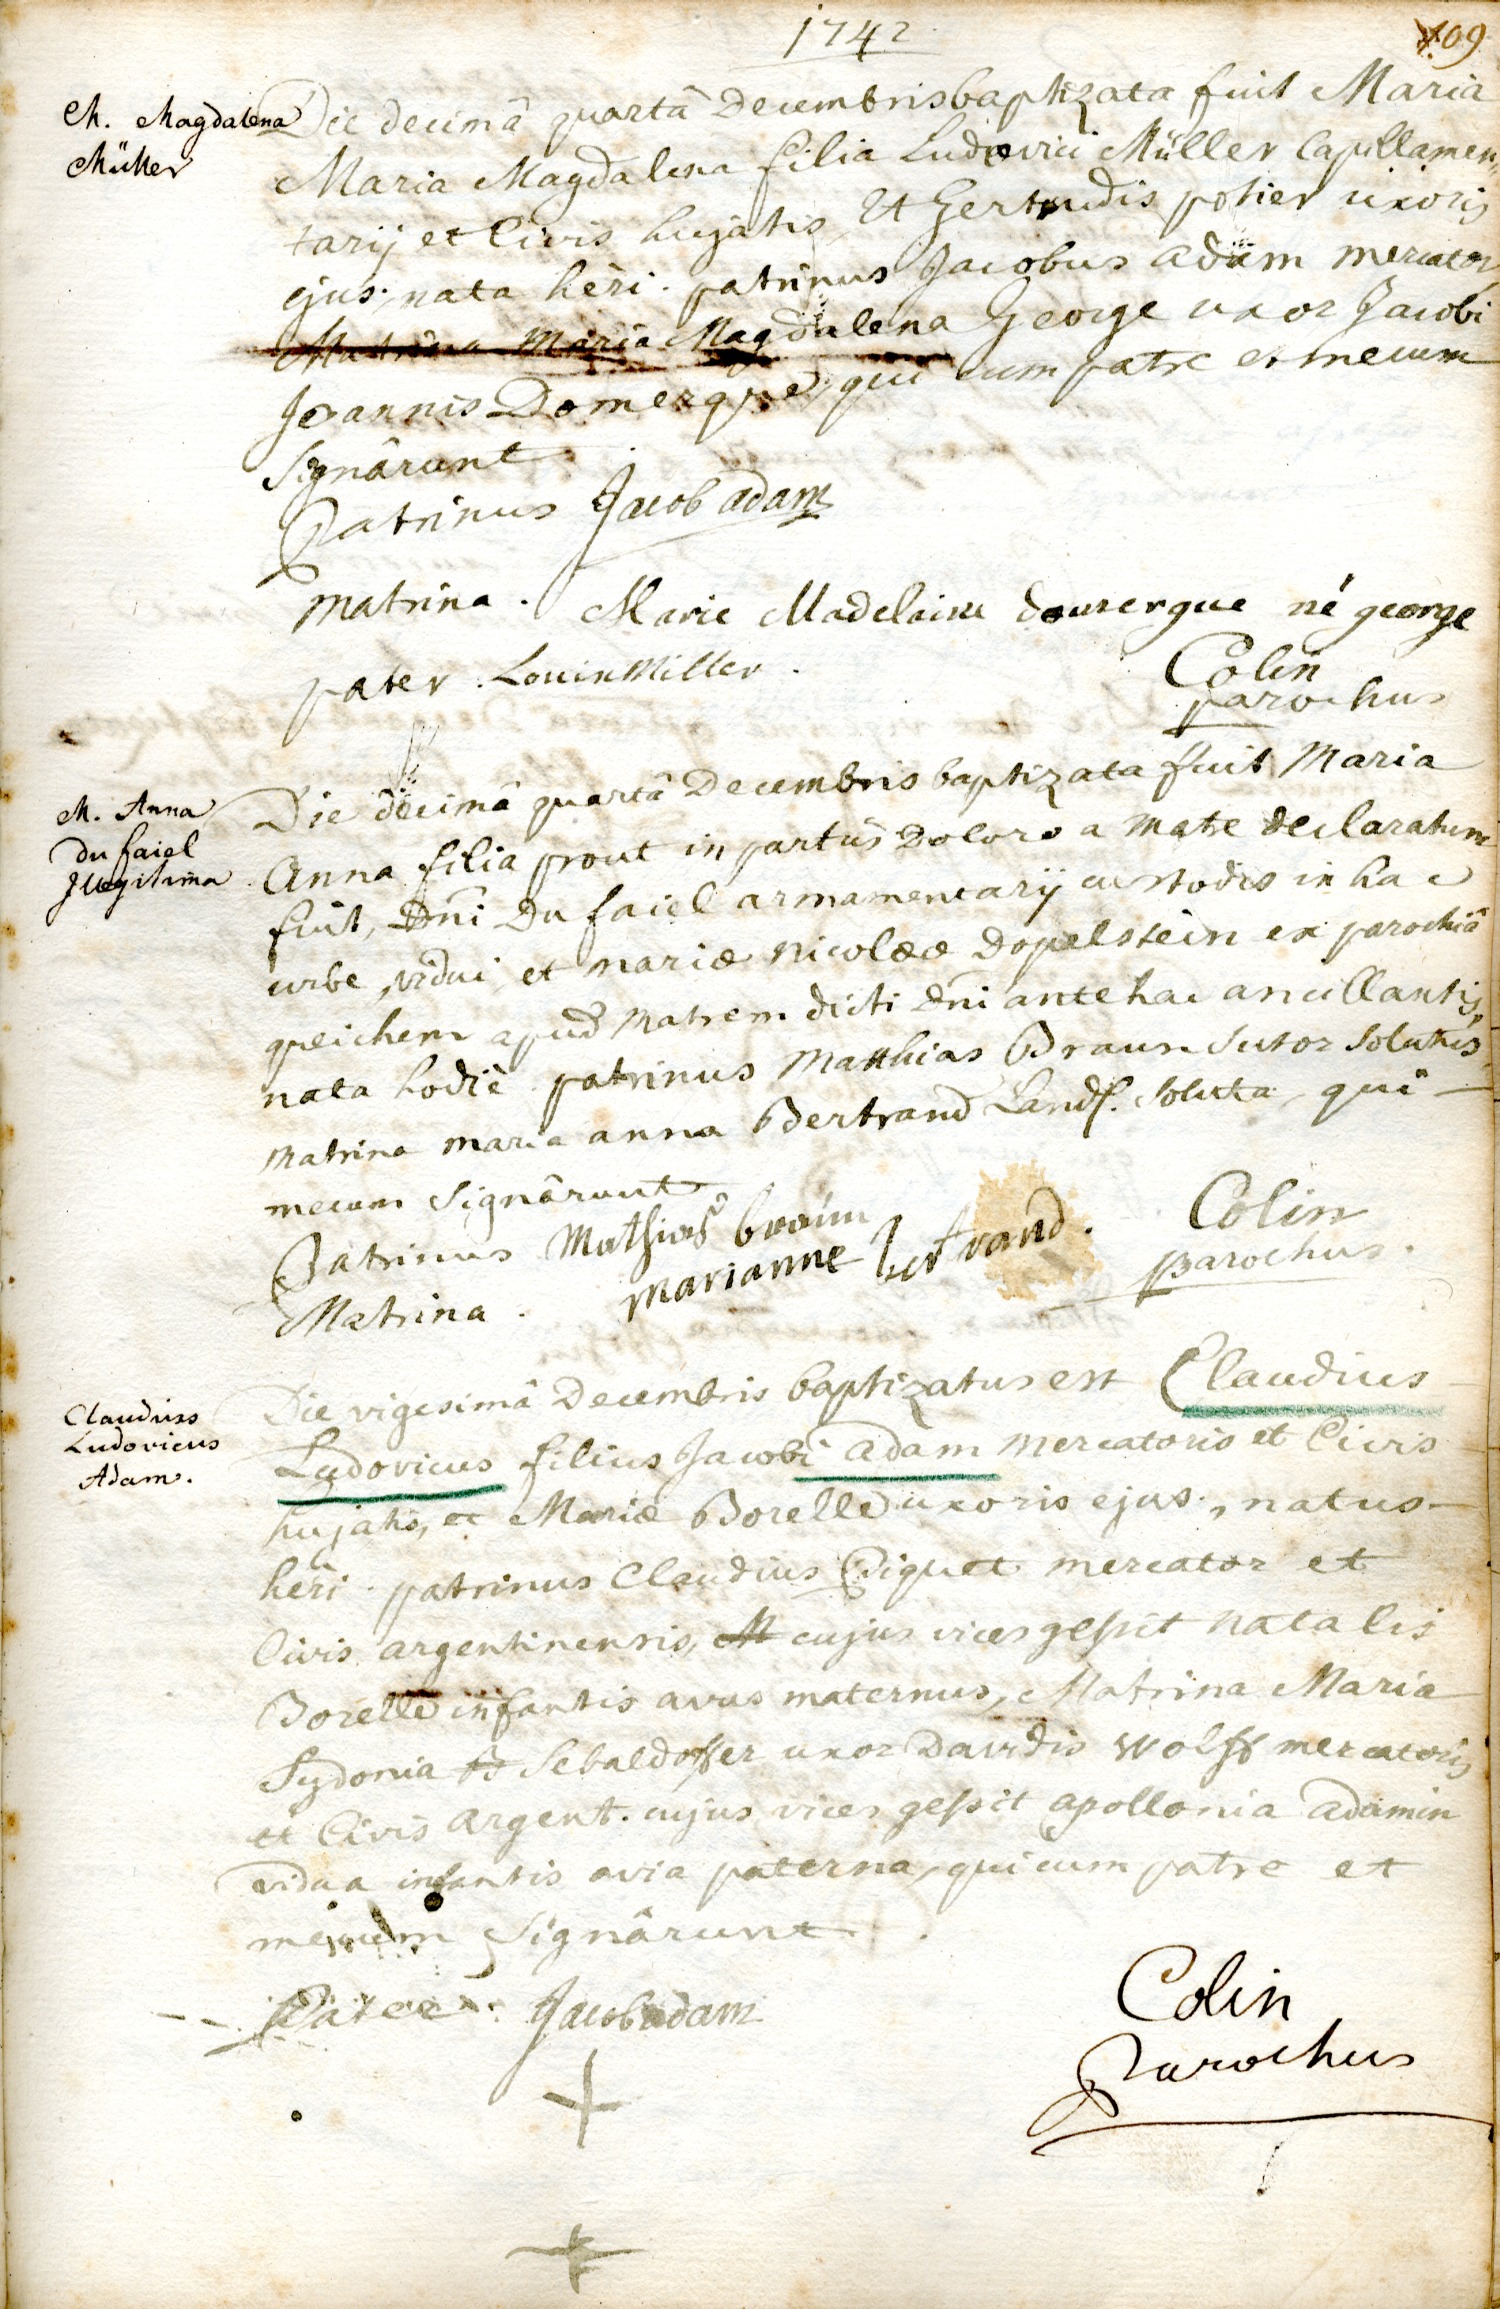 1742
109
M. Magdalena
Müller
Die decimâ quartâ Decembris baptizata fuit Maria
Maria Magdalena filia Ludovici Müller Capillamen,,
tarij et Civis hujatis, Et Gertrudis potier uxoris
ejus, nata hèri. patrinus Jacobus adam mercator,
Matrina Maria Magdalena George uxor Jacobi
Joannis Domergue, qui cum patre et mecum
signârunt
Patrinus Jacob adam
Matrina. Marie Madelaine dourergue né george
pater. Louis Miller.
Colin
parochus
M. Anna
Du faiel
Illegitima
Die decimâ quartâ Decembris baptizata fuit Maria
Anna filia prout in partûs Dolore a Matre declaratum
fuit, Dni Du faiel armamentarij custodis in hac
urbe, vidui et mariæ Nicolææ Dopelstein ex parochiâ
queichem apud Matrem dicti Dni antehac ancillantis,
nata hodiè. patrinus Matthias Braun sutor solutus,
Matrina maria anna Bertrand Landf. soluta, qui
mecum signârunt
Patrinus Mathias braun
Matrina. marianne bertrand.
Colin
Parochus.
Claudius
Ludovicus
Adam.
Die vigesimâ Decembris baptizatus est Claudius
Ludovicus filius Jacobi adam mercatoris et Civis
hujatis, et Mariæ Borelle uxoris ejus, natus
hèri. patrinus Claudius Piquet mercator et
Civis argentinensis, M cujus vices gessit Natalis
Borelle infantis avus maternus, Matrina Maria
Sydonia Sebaldoffer uxor Davidis Wolff mercatoris
et Civis Argent. cujus vices gessit apollonia adamin
vidua infantis avia paterna, qui cum patre et
mecum signârunt.
Pater. Jacob adam
Colin
Parochus